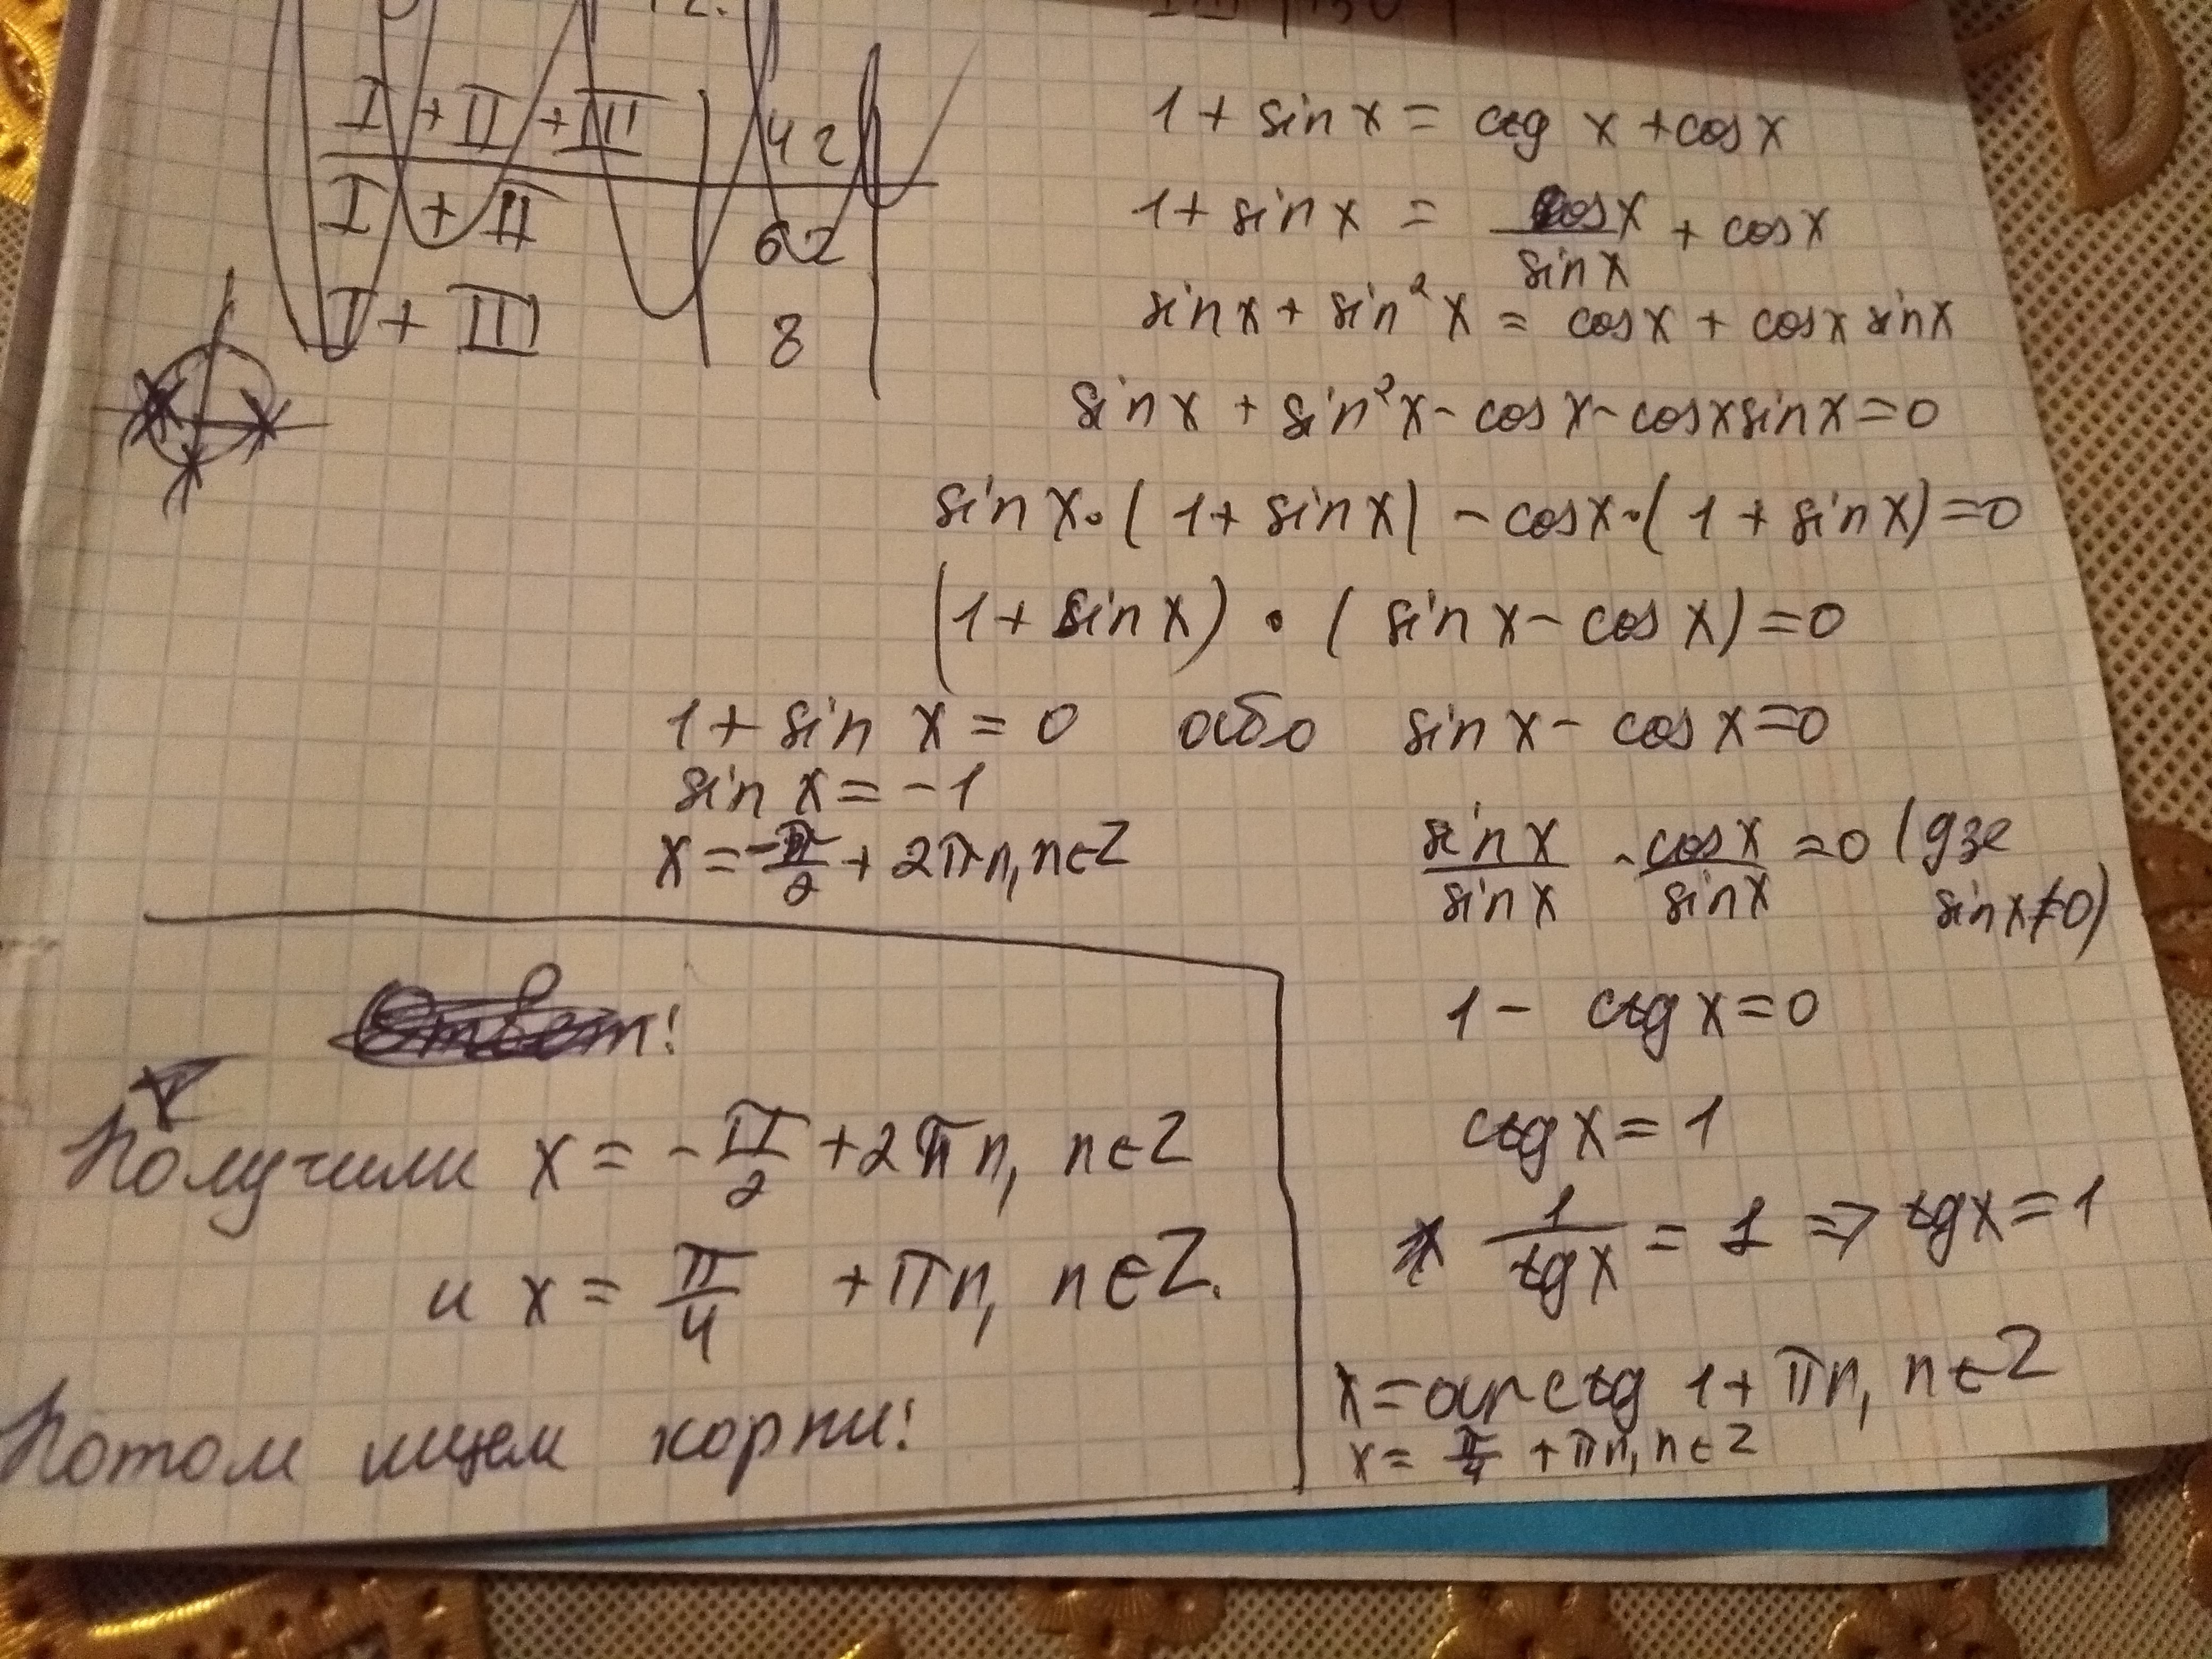 I + II + III | 42
I + II 62
I + III 8
1 + sin x = ctg x + cos x
1 + sin x = cos x / sin x + cos x
sin x + sin² x = cos x + cos x sin x
sin x + sin² x - cos x - cos x sin x = 0
sin x · (1 + sin x) - cos x · (1 + sin x) = 0
(1 + sin x) · (sin x - cos x) = 0
1 + sin x = 0 або sin x - cos x = 0
sin x = -1
x = -π/2 + 2πn, n ∈ Z
sin x / sin x - cos x / sin x = 0 (дзе
sin x ≠ 0)
1 - ctg x = 0
ctg x = 1
1 / tg x = 1 => tg x = 1
x = arcctg 1 + πn, n ∈ Z
x = π/4 + πn, n ∈ Z
Ответ!
Получили x = -π/2 + 2πn, n ∈ Z
и x = π/4 + πn, n ∈ Z.
Потом ищем корни!